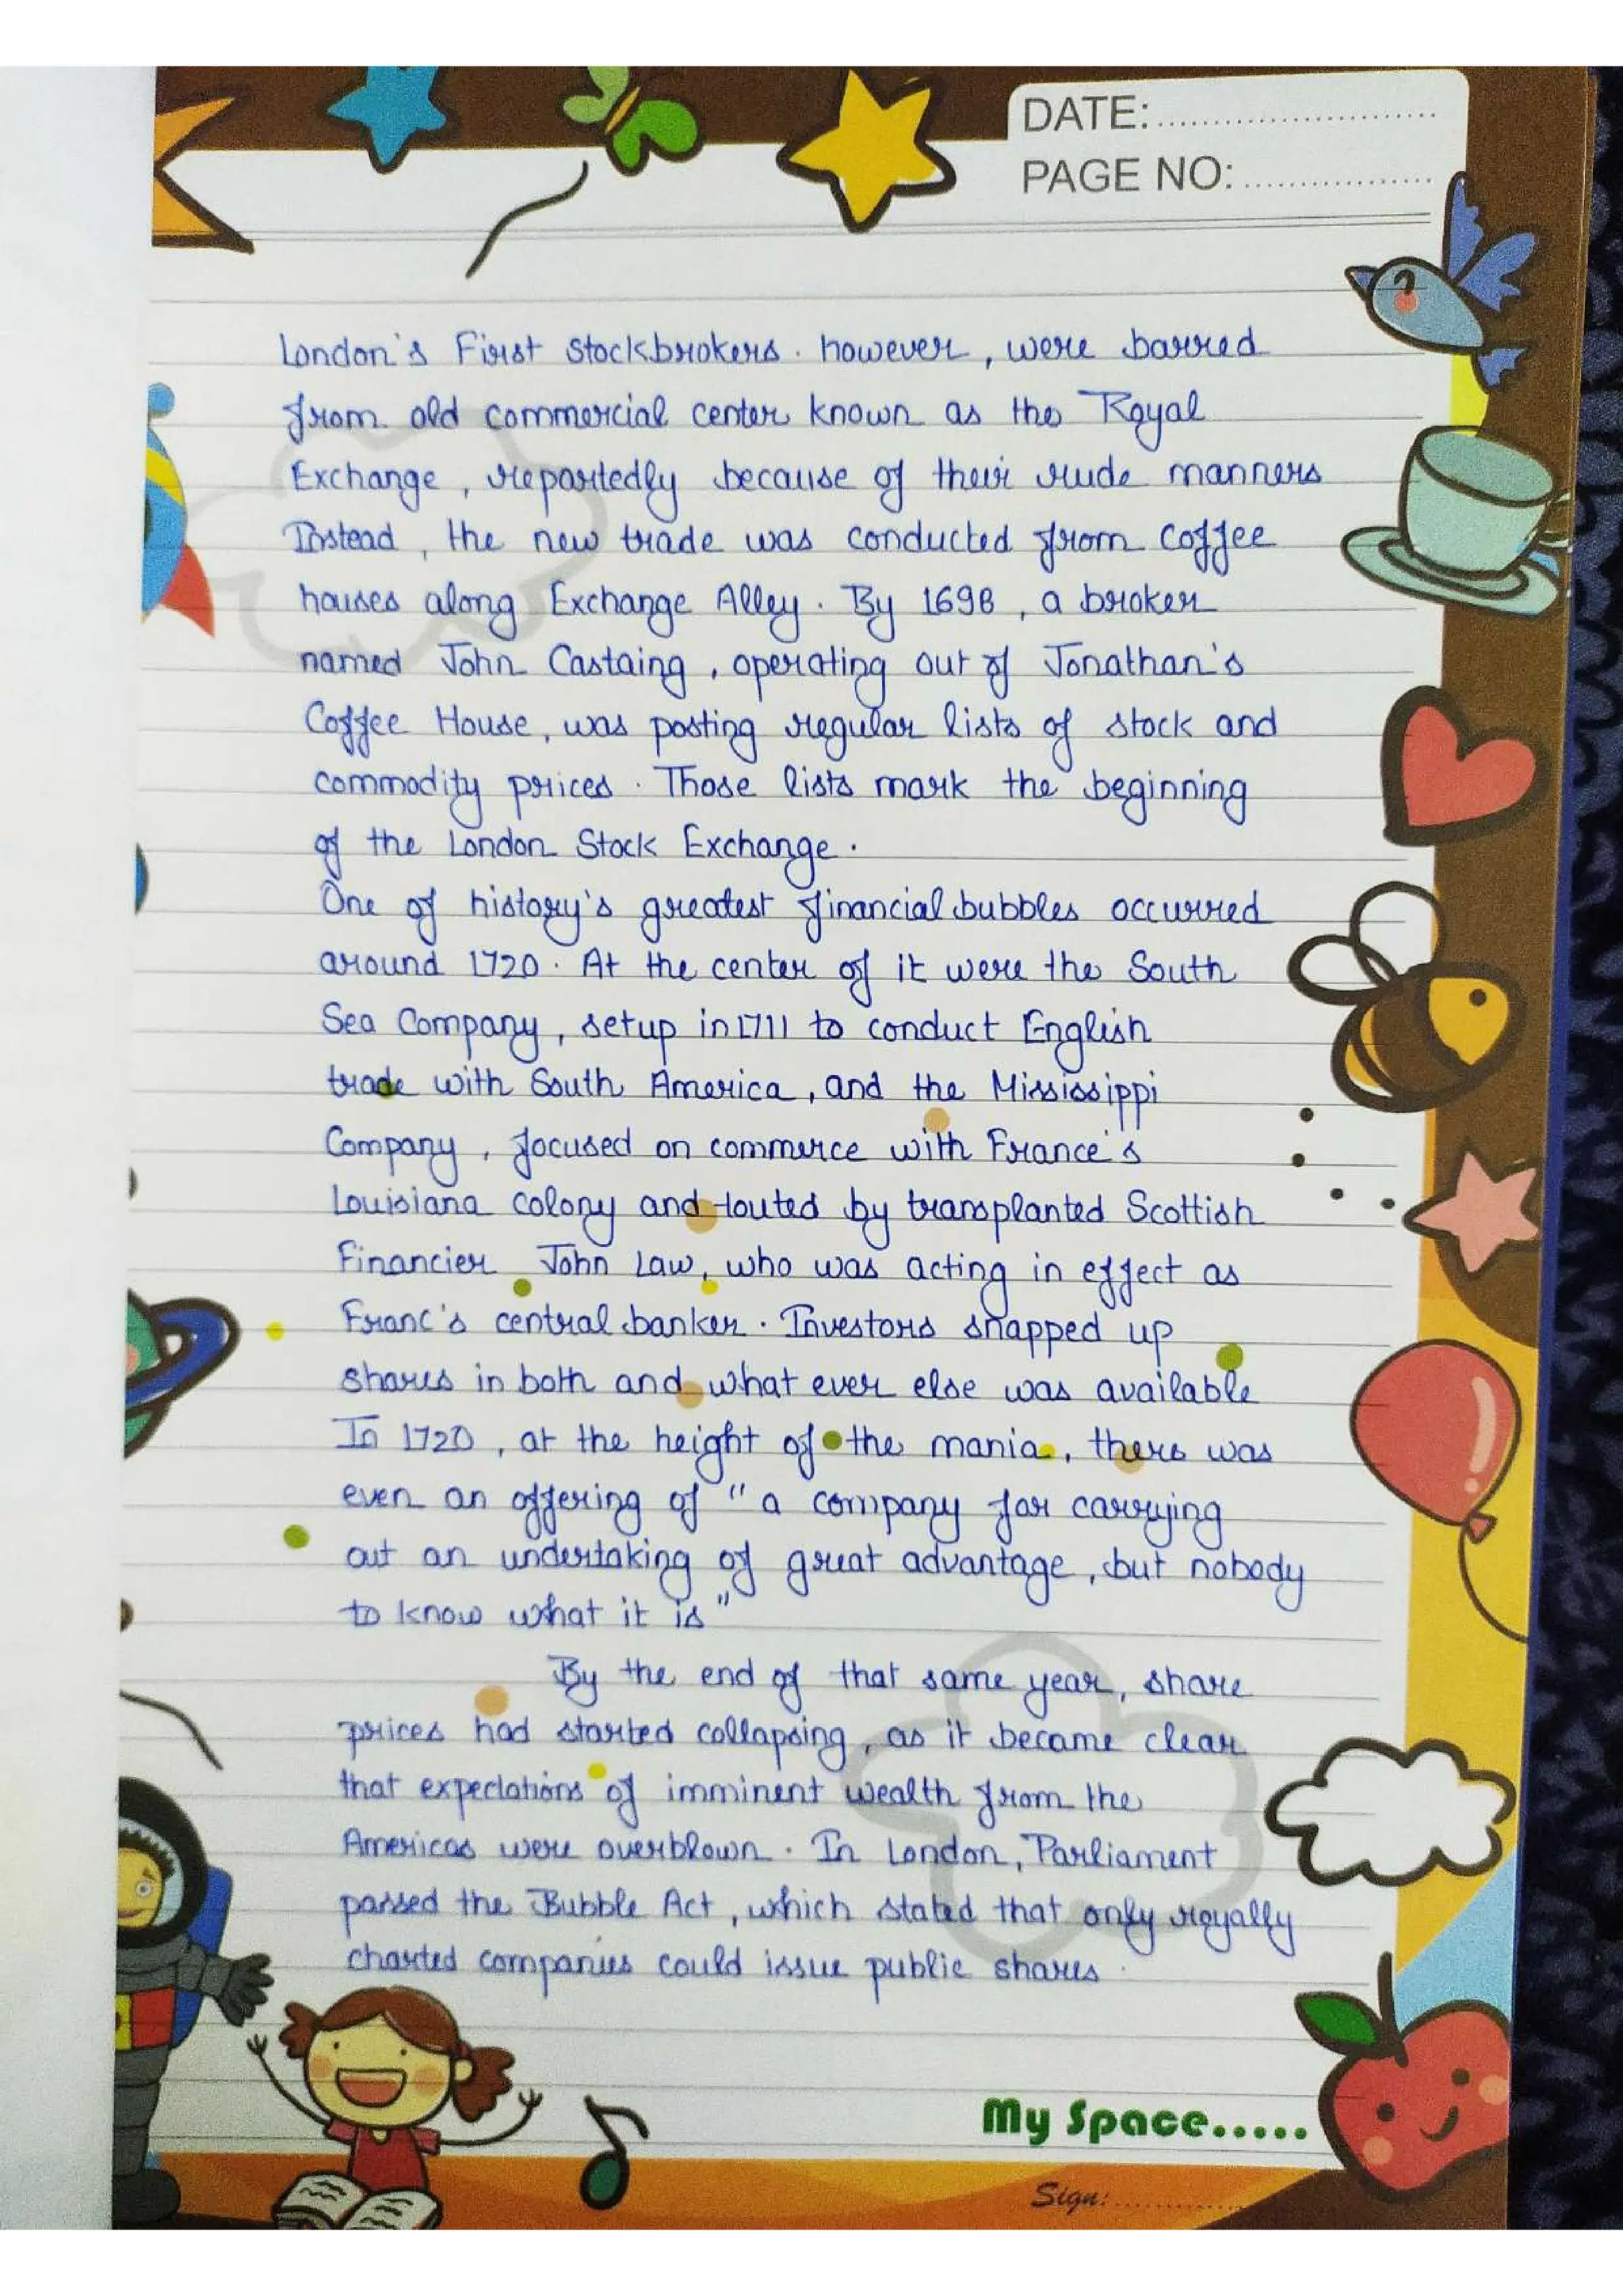 DATE:
PAGE NO:
London's First stockbrokers. however, were barred
from old commercial center known as the Royal
Exchange, reportedly because of their rude manners
Instead, the new trade was conducted from coffee
houses along Exchange Alley. By 1698, a broker
named John Castaing, operating out of Jonathan's
Coffee House, was posting regular lists of stock and
commodity prices. Those lists mark the beginning
of the London Stock Exchange.
One of history's greatest financial bubbles occurred
around 1720. At the center of it were the South
Sea Company, setup in 1711 to conduct English
trade with South America, and the Mississippi
Company, focused on commerce with France's
Louisiana colony and touted by transplanted Scottish
Financier John Law, who was acting in effect as
Franc's central banker. Investors snapped up
shares in both and what ever else was available
In 1720, at the height of the mania, there was
even an offering of "a company for carrying
out an undertaking of great advantage, but nobody
to know what it is"
By the end of that same year, share
prices had started collapsing, as it became clear
that expectations of imminent wealth from the
Americas were overblown. In London, Parliament
passed the Bubble Act, which stated that only royally
charted companies could issue public shares.
My Space.....
Sign: